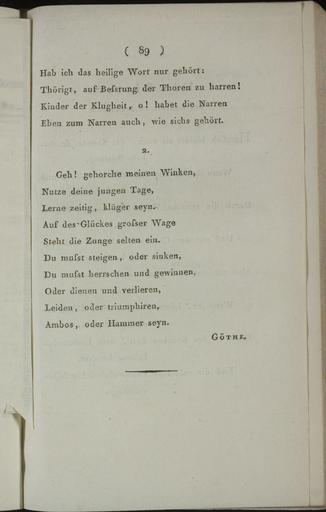 ( 89 )
Hab ich das heilige Wort nur gehört:
Thörigt, auf Beſsrung der Thoren zu harren!
Kinder der Klugheit, o! habet die Narren
Eben zum Narren auch, wie sichs gehört.
2.
Geh! gehorche meinen Winken,
Nutze deine jungen Tage,
Lerne zeitig, klüger seyn.
Auf des Glückes groſser Wage
Steht die Zunge selten ein.
Du muſst steigen, oder sinken,
Du muſst herrschen und gewinnen,
Oder dienen und verlieren,
Leiden, oder triumphiren,
Ambos, oder Hammer seyn.
GÖTHE.